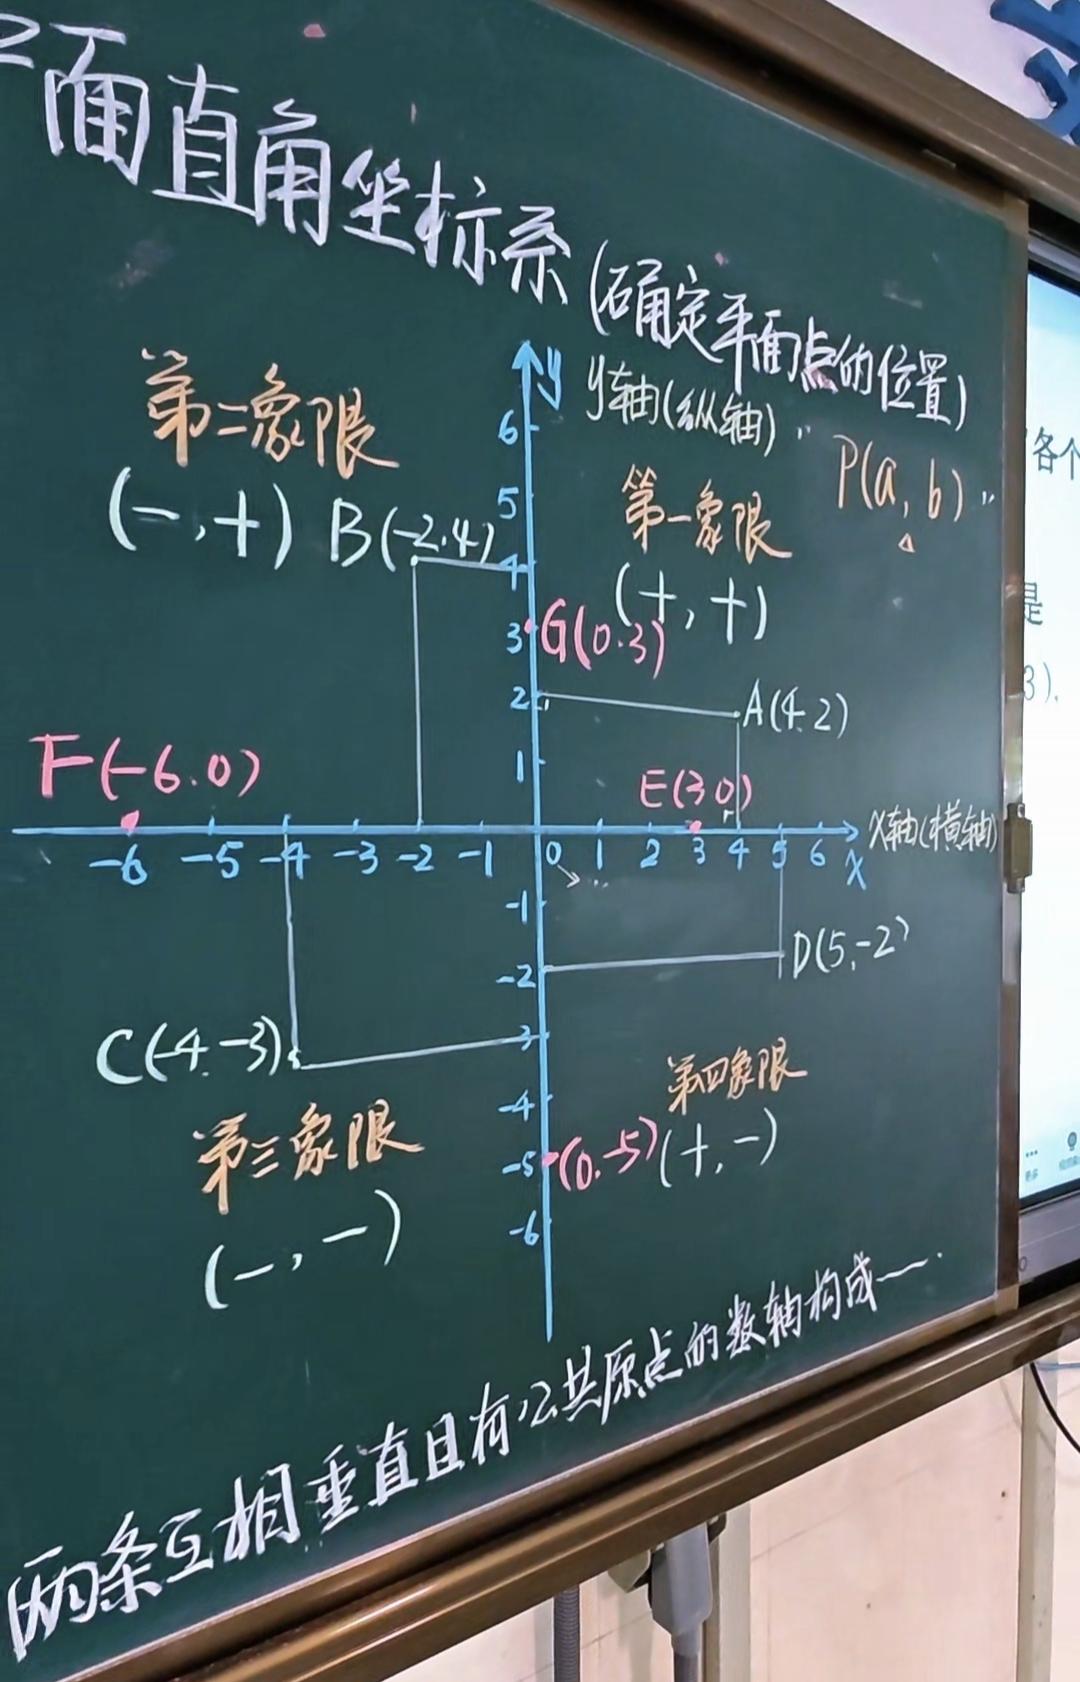 面直角坐标系
(确定平面点的位置)
y
y轴(纵轴)
P(a, b)
第二象限
(-,+)
B(-2,4)
第一象限
(+,+)
6
5
4
3
2
1
G(0.3)
A(4.2)
F(-6.0)
E(3 0)
x轴(横轴)
-6 -5 -4 -3 -2 -1 0 1 2 3 4 5 6 x
-1
-2
-3
-4
-5
-6
D(5,-2)
C(-4.-3)
第三象限
(-,-)
第四象限
(+,-)
(0.-5)
(两条互相垂直且有公共原点的数轴构成一
各个
是
3).
更多